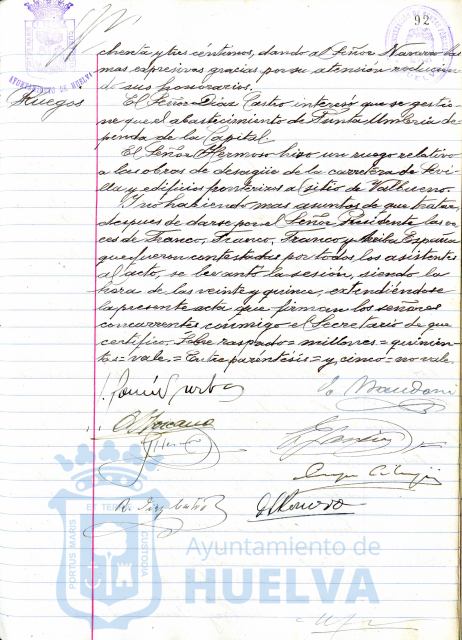 92
AYUNTAMIENTO DE HUELVA
chenta y tres céntimos, dando al Señor Navarro las
mas expresivas gracias por su atención
do sus honorarios.
Ruegos
El Señor Diaz Castro interesó que se gestio-
ne que el abastecimiento de Punta Umbria de-
penda de la Capital.
El Señor Hermoso hizo un ruego relativo
a las obras de desagüe de la carretera de Sevi-
lla y edificios a sitio de
Y no habiendo mas asuntos de que tratar,
despues de darse por el Señor Presidente las vo-
ces de Franco, Franco, Franco y Arriba España
que fueron contestadas por todos los asistentes
al acto, se levantó la sesión, siendo la
hora de las veinte y quince, extendiéndose
la presente acta que firman los señores
concurrentes conmigo el Secretario de que
certifico. Sobre raspado = millones = quinien-
tas = vale. = Entre paréntesis = y, cinco = no vale.
PORTUS MARIS
ET TERRÆ
CUSTODIA
Ayuntamiento de
HUELVA